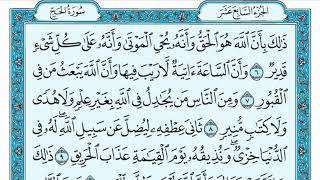 الجزء السابع عشر
سورة الحج
ذَٰلِكَ بِأَنَّ ٱللَّهَ هُوَ ٱلْحَقُّ وَأَنَّهُۥ يُحْىِ ٱلْمَوْتَىٰ وَأَنَّهُۥ عَلَىٰ كُلِّ شَىْءٍ
قَدِيرٌ ٦ وَأَنَّ ٱلسَّاعَةَ ءَاتِيَةٌ لَّا رَيْبَ فِيهَا وَأَنَّ ٱللَّهَ يَبْعَثُ مَن فِى
ٱلْقُبُورِ ٧ وَمِنَ ٱلنَّاسِ مَن يُجَٰدِلُ فِى ٱللَّهِ بِغَيْرِ عِلْمٍ وَلَا هُدًى
وَلَا كِتَٰبٍ مُّنِيرٍ ٨ ثَانِىَ عِطْفِهِۦ لِيُضِلَّ عَن سَبِيلِ ٱللَّهِ لَهُۥ فِى
ٱلدُّنْيَا خِزْىٌ وَنُذِيقُهُۥ يَوْمَ ٱلْقِيَٰمَةِ عَذَابَ ٱلْحَرِيقِ ٩ ذَٰلِكَ